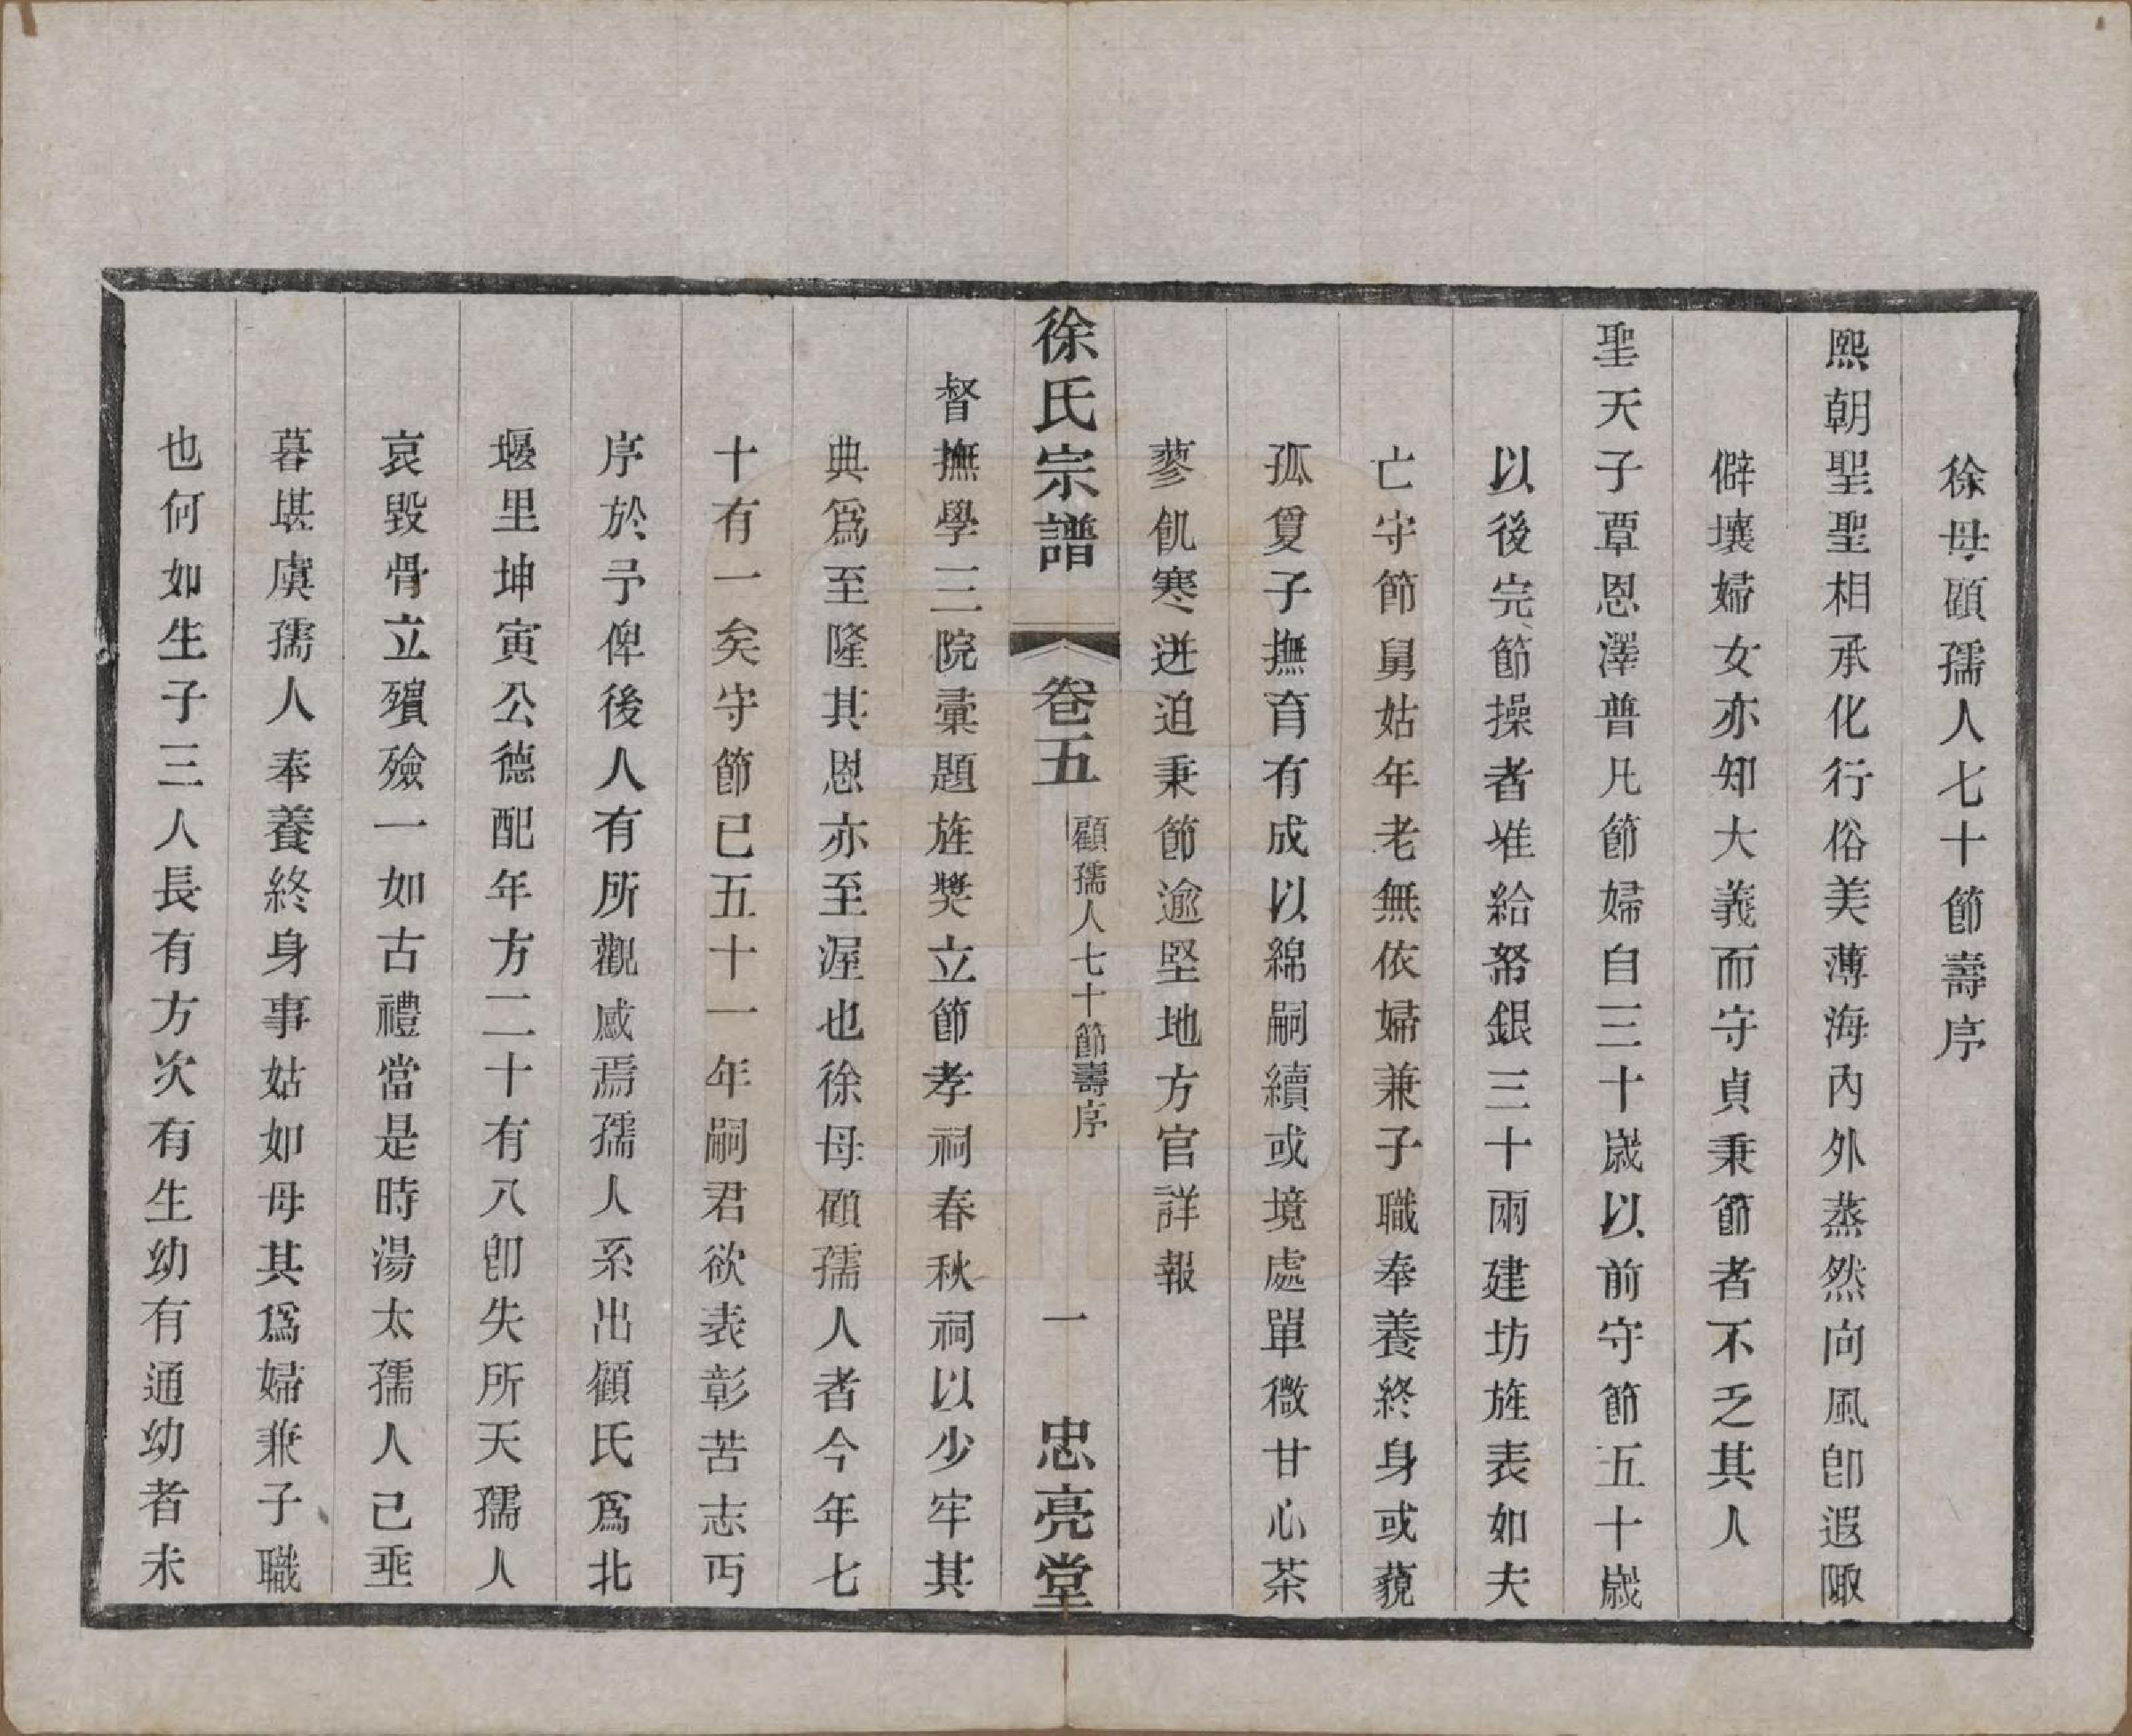 徐母顧孺人七十節壽序
熙朝聖聖相承化行俗美薄海內外蒸然向風卽遐陬
僻壤婦女亦知大義而守貞秉節者不乏其人
聖天子覃恩澤普凡節婦自三十歲以前守節五十歲
以後完節操者准給帑銀三十兩建坊旌表如夫
亡守節舅姑年老無依婦兼子職奉養終身或藐
孤夐子撫育有成以綿嗣續或境處單微甘心茶
蓼飢寒迸迫秉節逾堅地方官詳報
徐氏宗譜
卷五
顧孺人七十節壽序
一
忠亮堂
督撫學三院彚題旌奬立節孝祠春秋祠以少牢其
典爲至隆其恩亦至渥也徐母顧孺人者今年七
十有一矣守節已五十一年嗣君欲表彰苦志丐
序於予俾後人有所觀感焉孺人系出顧氏爲北
堰里坤寅公德配年方二十有八卽失所天孺人
哀毀骨立殯殮一如古禮當是時湯太孺人已垂
暮堪虞孺人奉養終身事姑如母其爲婦兼子職
也何如生子三人長有方次有生幼有通幼者未